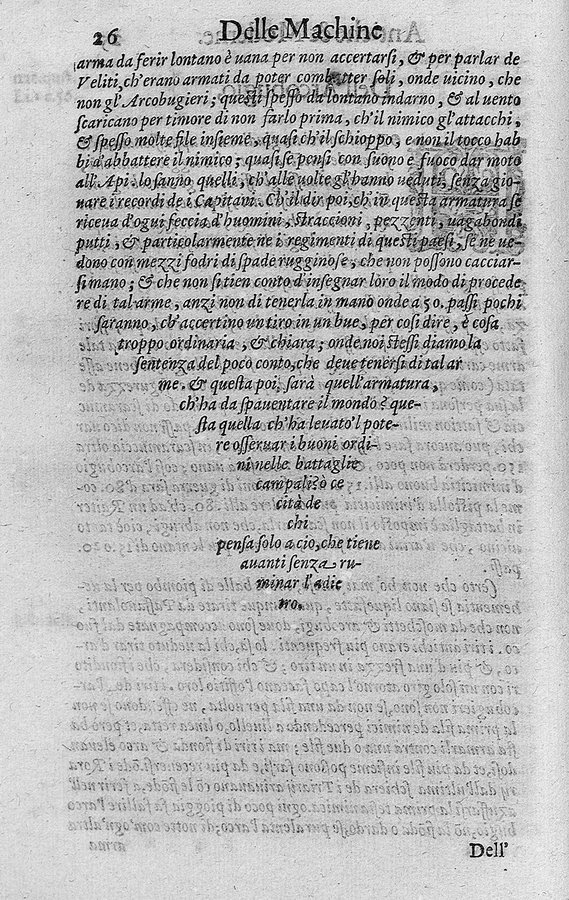 26 Delle Machine
arma da ferir lontano è uana per non accertarsi, & per parlar de
Veliti, ch'erano armati da poter combatter soli, onde uicino, che
non gl'Arcobugieri; questi spesso da lontano indarno, & al uento
scaricano per timore di non farlo prima, ch'il nimico gl'attacchi,
& spesso molte file insieme, quasi ch'il schioppo, e non il tocco hab
bi d'abbattere il nimico; quasi se pensi con suono e fuoco dar moto
all'Api: lo sanno quelli, ch'alle uolte gl'hanno ueduti, senza gio-
uare i recordi de i Capitani. Ch'il dir poi, ch'in questa armatura se
riceua d'ogui feccia d'huomini, straccioni, pezzenti, uagabondi
putti, & particolarmente ne i regimenti di questi paesi, se ne ue-
dono con mezzi fodri di spade rugginose, che non possono cacciar-
si mano; & che non si tien conto d'insegnar loro il modo di procede
re di tal arme, anzi non di tenerla in mano onde a 50. passi pochi
saranno, ch'accertino un tiro in un bue, per cosi dire, è cosa
troppo ordinaria, & chiara; onde noi stessi diamo la
sentenza del poco conto, che deue tenersi di tal ar
me. & questa poi, sarà quell'armatura,
ch'ha da spauentare il mondo? que-
sta quella ch'ha leuato'l pote-
re osseruar i buoni ordi-
ni nelle battaglie
campali? ò ce
cità de
chi
pensa solo a cio, che tiene
auanti senza ru-
minar l'adie
tro.
Dell'